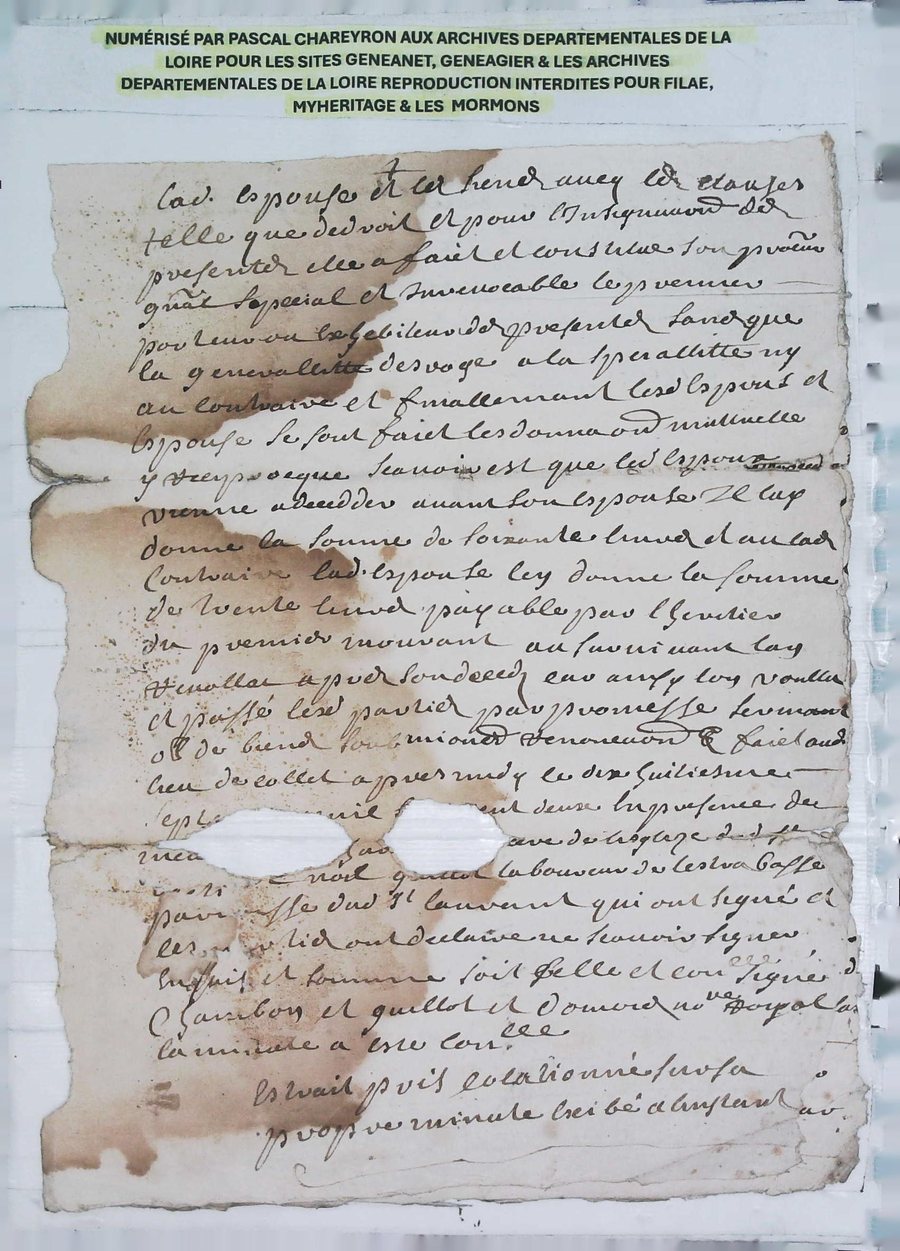 NUMÉRISÉ PAR PASCAL CHAREYRON AUX ARCHIVES DEPARTEMENTALES DE LA
LOIRE POUR LES SITES GENEANET, GENEAGIER & LES ARCHIVES
DEPARTEMENTALES DE LA LOIRE REPRODUCTION INTERDITES POUR FILAE,
MYHERITAGE & LES MORMONS
lad. espouse et les siens avecq les clauses
telle que de droit et pour l'insignuaon des
presentes elle a faict et constitue son procur
gnal special et irrevocable le premier
porteur ou des presentes sans que
la generallitte desroge a la speciallitte ny
au contraire et finallemant lesd espoux et
espouse se sont faict les donnaon mutuelle
y recyproque scavoir est que led espoux
vienne a decedder avant son espouse Il luy
donne la somme de soixante livres et au cas
contraire lad. espouse luy donne la somme
de trente livres payable par l'heritier
du premier mourant au survivant
apres son deces car ainsy lon voullu
et passé lesd parties par promesse sermant
ob de biens soubmions renoncion & faict aud
lieu de collet apres midy le dix huitiesme
sept mil nt deux En presence de
de lesglize dud st
laboureur de lestra basse
paroisse dud st laurent qui ont signé et
les parties ont declaire ne scavoir signer
Enquis et somme soit selle et con.lle signé
Chambon et guillot et domord nore royal
la minute a este con.lle
Extrait pris colationné sur sa
propre minute exibé a linstant